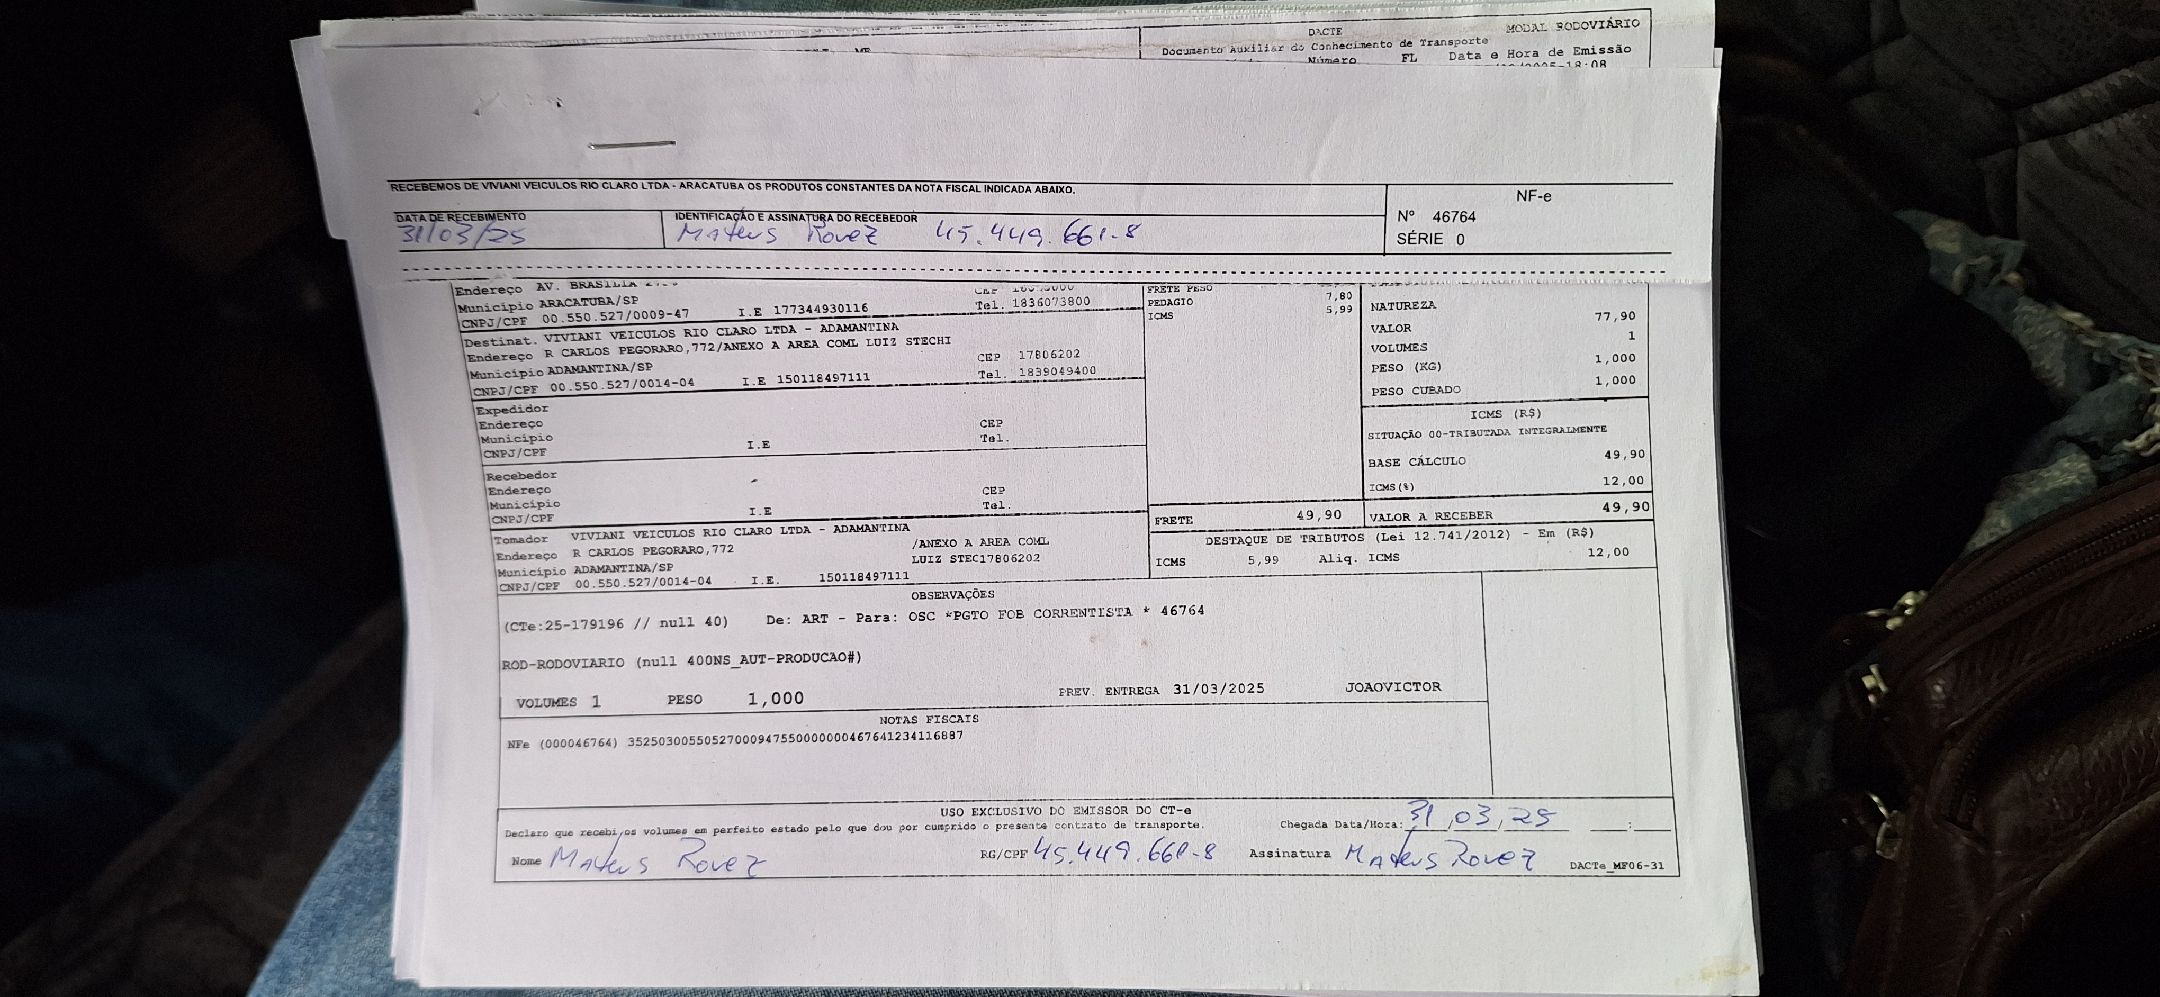 DACTE MODAL RODOVIÁRIO
Documento Auxiliar do Conhecimento de Transporte
Número FL Data e Hora de Emissão
18:08
RECEBEMOS DE VIVIANI VEICULOS RIO CLARO LTDA - ARACATUBA OS PRODUTOS CONSTANTES DA NOTA FISCAL INDICADA ABAIXO.
NF-e
Nº 46764
SÉRIE 0
DATA DE RECEBIMENTO
31/03/25
IDENTIFICAÇÃO E ASSINATURA DO RECEBEDOR
Mateus Rovez 45.449.661-8
Endereço AV. BRASILIA
Município ARACATUBA/SP Tel. 1836073800
CNPJ/CPF 00.550.527/0009-47 I.E 177344930116
Destinat. VIVIANI VEICULOS RIO CLARO LTDA - ADAMANTINA
Endereço R CARLOS PEGORARO,772/ANEXO A AREA COML LUIZ STECHI CEP 17806202
Município ADAMANTINA/SP Tel. 1839049400
CNPJ/CPF 00.550.527/0014-04 I.E 150118497111
Expedidor
Endereço CEP
Município Tel.
CNPJ/CPF I.E
Recebedor
Endereço CEP
Município Tel.
CNPJ/CPF I.E
Tomador VIVIANI VEICULOS RIO CLARO LTDA - ADAMANTINA
Endereço R CARLOS PEGORARO,772 /ANEXO A AREA COML
Município ADAMANTINA/SP LUIZ STEC17806202
CNPJ/CPF 00.550.527/0014-04 I.E. 150118497111
FRETE PESO
PEDAGIO 7,80
ICMS 5,99
FRETE 49,90
NATUREZA
VALOR 77,90
VOLUMES 1
PESO (KG) 1,000
PESO CUBADO 1,000
ICMS (R$)
SITUAÇÃO 00-TRIBUTADA INTEGRALMENTE
BASE CÁLCULO 49,90
ICMS(%) 12,00
VALOR A RECEBER 49,90
DESTAQUE DE TRIBUTOS (Lei 12.741/2012) - Em (R$)
ICMS 5,99 Aliq. ICMS 12,00
OBSERVAÇÕES
(CTe:25-179196 // null 40) De: ART - Para: OSC *PGTO FOB CORRENTISTA * 46764
ROD-RODOVIARIO (null 400NS_AUT-PRODUCAO#)
VOLUMES 1 PESO 1,000 PREV. ENTREGA 31/03/2025 JOAOVICTOR
NOTAS FISCAIS
NFe (000046764) 35250300550527000947550000000467641234116887
USO EXCLUSIVO DO EMISSOR DO CT-e
Declaro que recebi os volumes em perfeito estado pelo que dou por cumprido o presente contrato de transporte. Chegada Data/Hora: 31,03,25 __:__
Nome Mateus Rovez RG/CPF 45.449.661-8 Assinatura Mateus Rovez DACTe_MF06-31